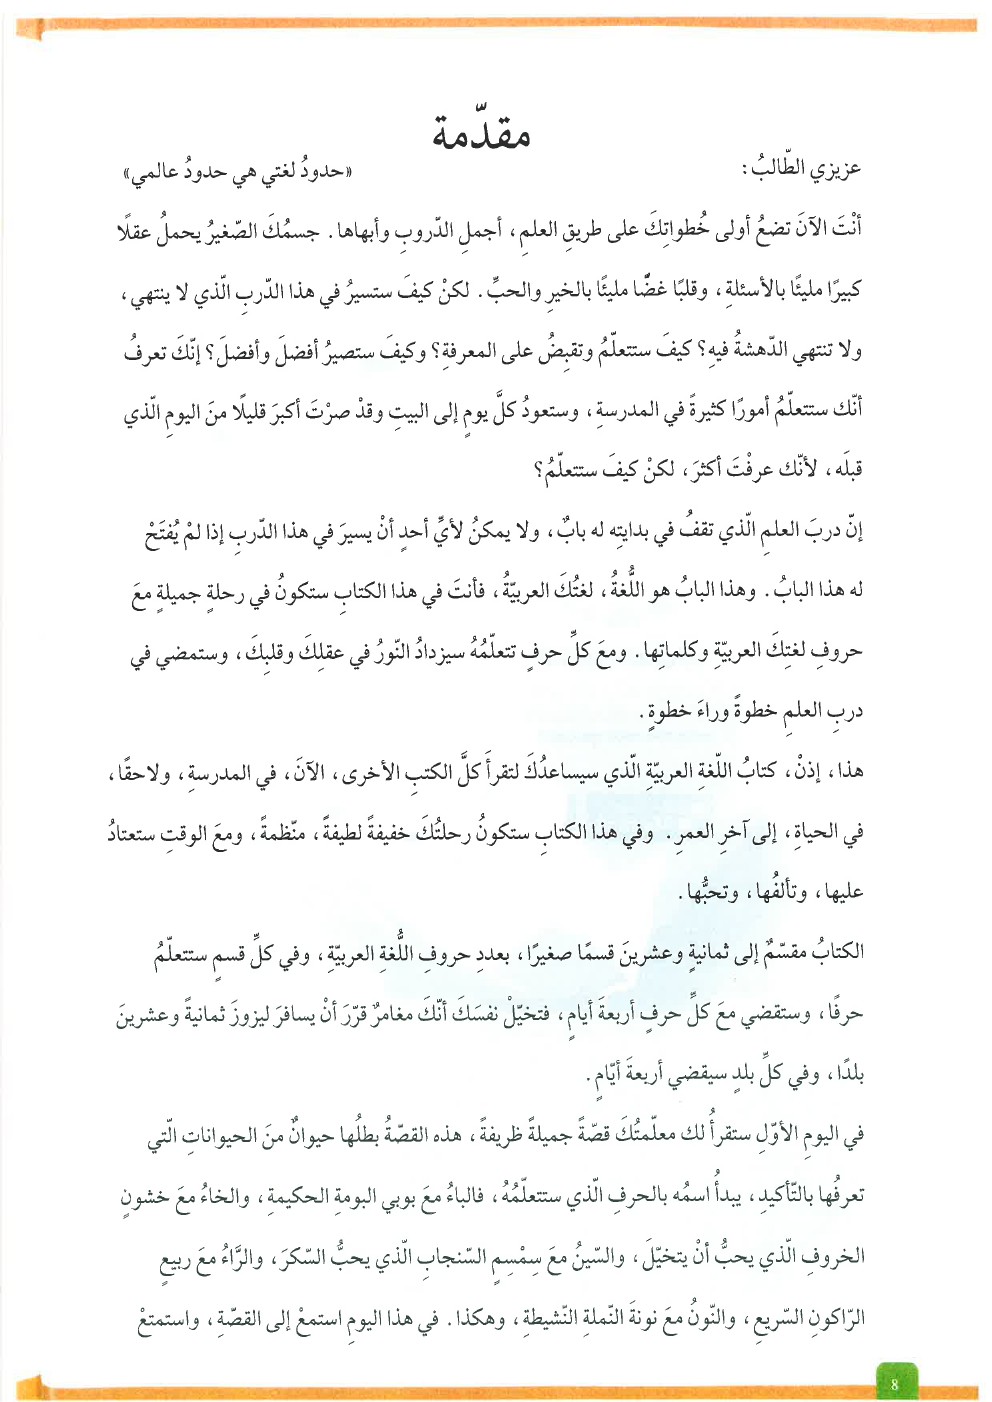 مقدّمة
عزيزي الطّالبُ: «حدودُ لغتي هي حدودُ عالمي»
أنْتَ الآنَ تضعُ أولى خُطواتِكَ على طريقِ العلمِ، أجملِ الدّروبِ وأبهاها. جسمُكَ الصّغيرُ يحملُ عقلًا
كبيرًا مليئًا بالأسئلةِ، وقلبًا غضًّا مليئًا بالخيرِ والحبِّ. لكنْ كيفَ ستسيرُ في هذا الدّربِ الّذي لا ينتهي،
ولا تنتهي الدّهشةُ فيهِ؟ كيفَ ستتعلّمُ وتقبِضُ على المعرفةِ؟ وكيفَ ستصيرُ أفضلَ وأفضلَ؟ إنّكَ تعرفُ
أنّك ستتعلّمُ أمورًا كثيرةً في المدرسةِ، وستعودُ كلَّ يومٍ إلى البيتِ وقدْ صرْتَ أكبرَ قليلًا منَ اليومِ الّذي
قبلَه، لأنّك عرفْتَ أكثرَ، لكنْ كيفَ ستتعلّمُ؟
إنّ دربَ العلمِ الّذي تقفُ في بدايتِه له بابٌ، ولا يمكنُ لأيِّ أحدٍ أنْ يسيرَ في هذا الدّربِ إذا لمْ يُفتَحْ
له هذا البابُ. وهذا البابُ هو اللُّغةُ، لغتُكَ العربيّةُ، فأنتَ في هذا الكتابِ ستكونُ في رحلةٍ جميلةٍ معَ
حروفِ لغتِكَ العربيّةِ وكلماتِها. ومعَ كلِّ حرفٍ تتعلّمُهُ سيزدادُ النّورُ في عقلِكَ وقلبِكَ، وستمضي في
دربِ العلمِ خطوةً وراءَ خطوةٍ.
هذا، إذنْ، كتابُ اللّغةِ العربيّةِ الّذي سيساعدُكَ لتقرأَ كلَّ الكتبِ الأخرى، الآنَ، في المدرسةِ، ولاحقًا،
في الحياةِ، إلى آخرِ العمرِ. وفي هذا الكتابِ ستكونُ رحلتُكَ خفيفةً لطيفةً، منّظمةً، ومعَ الوقتِ ستعتادُ
عليها، وتألفُها، وتحبُّها.
الكتابُ مقسّمٌ إلى ثمانيةٍ وعشرينَ قسمًا صغيرًا، بعددِ حروفِ اللُّغةِ العربيّةِ، وفي كلِّ قسمٍ ستتعلّمُ
حرفًا، وستقضي معَ كلِّ حرفٍ أربعةَ أيامٍ، فتخيّلْ نفسَكَ أنّكَ مغامرٌ قرّرَ أنْ يسافرَ ليزورَ ثمانيةً وعشرينَ
بلدًا، وفي كلِّ بلدٍ سيقضي أربعةَ أيّامٍ.
في اليومِ الأوّلِ ستقرأُ لك معلّمتُكَ قصّةً جميلةً ظريفةً، هذه القصّةُ بطلُها حيوانٌ منَ الحيواناتِ الّتي
تعرفُها بالتّأكيدِ، يبدأُ اسمُه بالحرفِ الّذي ستتعلّمُهُ، فالباءُ معَ بوبي البومةِ الحكيمةِ، والخاءُ معَ خشونٍ
الخروفِ الّذي يحبُّ أنْ يتخيّلَ، والسّينُ معَ سِمْسِمٍ السّنجابِ الّذي يحبُّ السّكرَ، والرَّاءُ معَ ربيعٍ
الرّاكونِ السّريعِ، والنّونُ معَ نونةَ النّملةِ النّشيطةِ، وهكذا. في هذا اليومِ استمعْ إلى القصّةِ، واستمتعْ
8